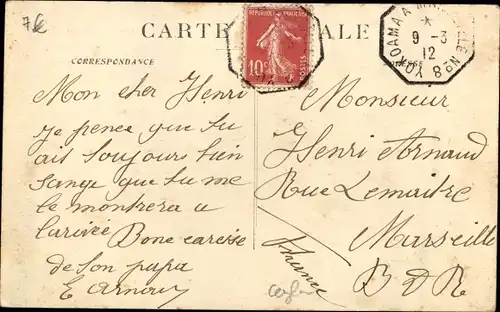 7€
CARTE POSTALE
CORRESPONDANCE
REPUBLIQUE FRANÇAISE
10
POSTES
YOKOHAMA A MARSEILLE Nº 8
*
9 - 3
12
Mon cher Henri
je pence que tu
ait toujours bien
sange que tu me
le montrera a
larivée Bone caresse
de ton papa
E Arnaud
Monsieur
Henri Arnaud
Rue Lemaitre
Marseille
B D R
France